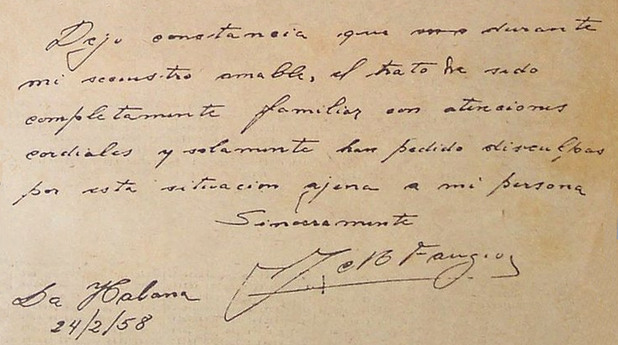 Dejo constancia que durante
mi secuestro amable, el trato ha sido
completamente familiar con atenciones
cordiales y solamente han pedido disculpas
por esta situacion ajena a mi persona
Sinceramente
Fangio
La Habana
24/2/58